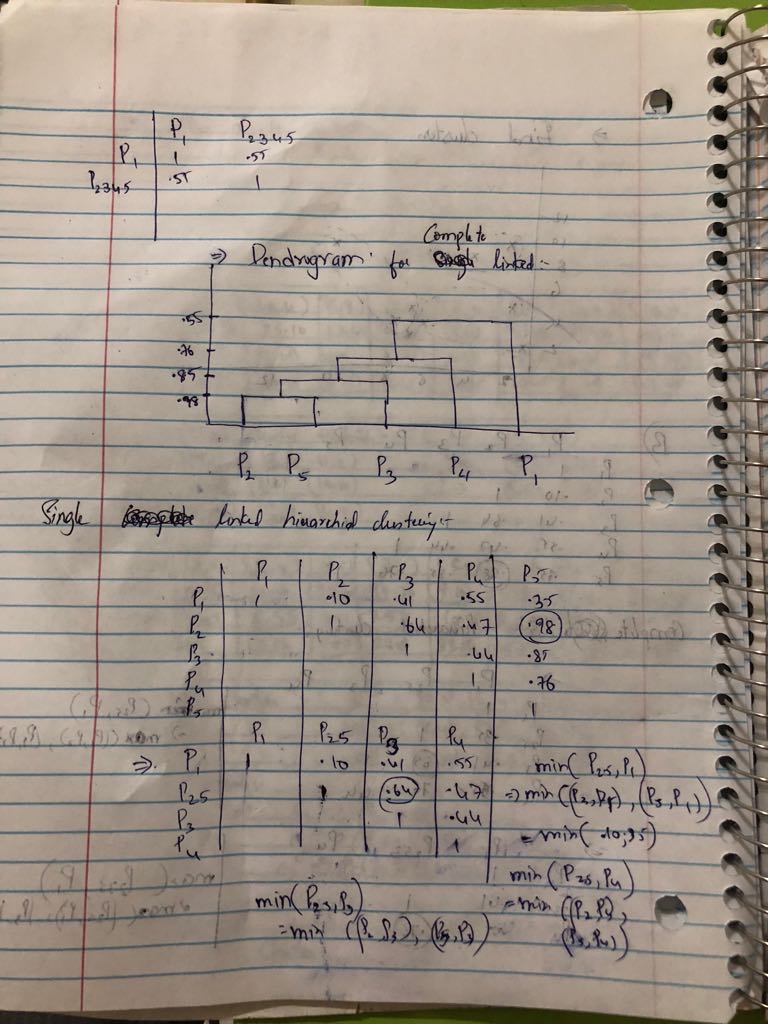 P₁ P₂₃₄₅
P₁ 1 .55
P₂₃₄₅ .55 1
Complete
⇒ Dendrogram for linked :-
.55
.76
.85
.98
P₂ P₅ P₃ P₄ P₁
Single linked hierarchid clustering :-
P₁ P₂ P₃ P₄ P₅
P₁ 1 .10 .41 .55 .35
P₂ 1 .64 .47 .98
P₃ 1 .44 .85
P₄ 1 .76
P₅ 1
P₁ P₂₅ P₃ P₄
⇒ P₁ 1 .10 .41 .55
P₂₅ 1 .64 .47
P₃ 1 .44
P₄ 1
min( P₂₅, P₁)
⇒ min( (P₂, P₁), (P₅, P₁))
= min( .10, .35)
min( P₂₅, P₃)
= min ((P₂ P₃), (P₅, P₃)
min (P₂₅, P₄)
= min ((P₂ P₄),
(P₅, P₄)